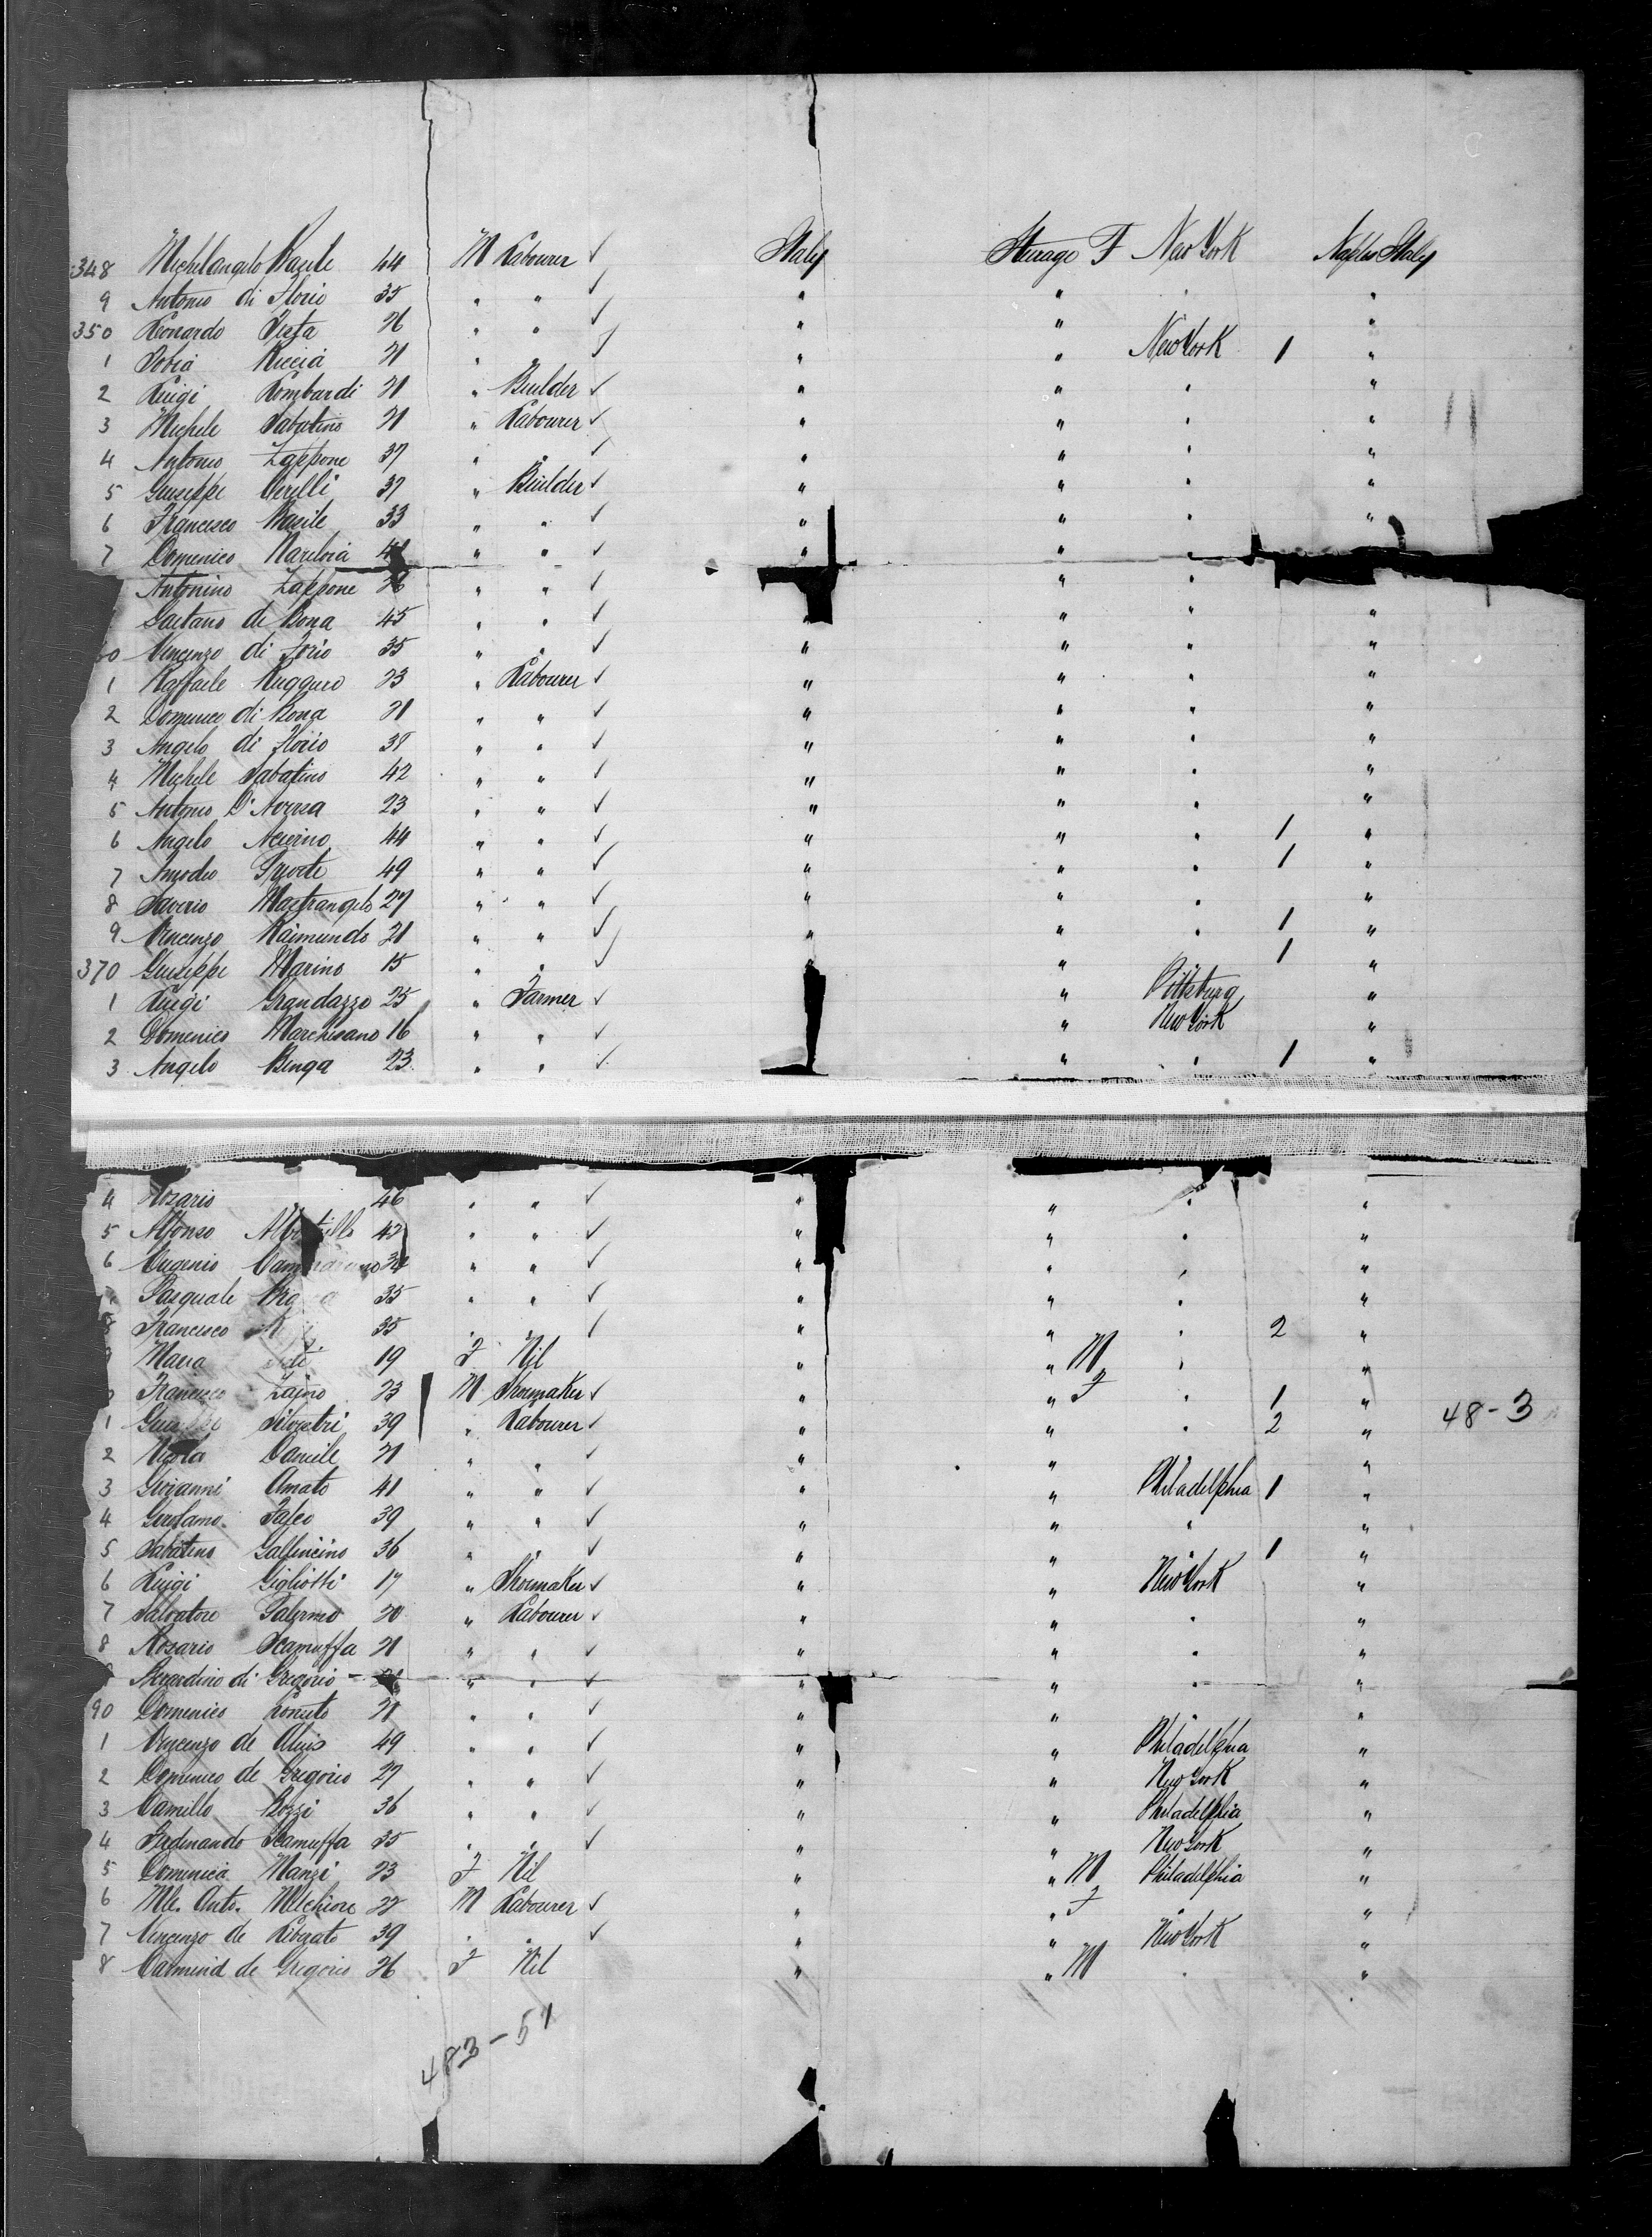 348 Michelangelo Basile 44 M Labourer ✓ Italy Steerage F New York Naples Italy
9 Antonio di Florio 35 " " ✓ " " " "
350 Leonardo Testa 26 " " ✓ " " "
1 Riccia 21 " ✓ " " New York 1 "
2 Luigi Lombardi 21 " Builder ✓ " " " "
3 Michele Sabatino 21 " Labourer ✓ " " " "
4 Antonio Zappone 37 " " ✓ " " " "
5 Giuseppe Cirelli 37 " Builder ✓ " " " "
6 Francesco Basile 33 " " ✓ " " " "
7 Domenico " " ✓ " " "
Antonino Zappone 26 " " ✓ " "
Gaetano di Bona 45 " " ✓ " " " "
0 Vincenzo di Iorio 35 " " ✓ " " " "
1 Raffaele Ruggiero 23 " Labourer ✓ " " " "
2 Domenico di Bona 21 " " ✓ " " " "
3 Angelo di Florio 38 " " ✓ " " " "
4 Michele Sabatino 42 " " ✓ " " " "
5 Antonio D'Aversa 23 " " ✓ " " " "
6 Angelo 44 " " ✓ " " " 1 "
7 Amodeo 49 " " ✓ " " " 1 "
8 Saverio Mastrangelo 27 " " ✓ " " " "
9 Vincenzo Raimundo 21 " " ✓ " " " 1 "
370 Giuseppe Marino 15 " " ✓ " " " 1 "
1 Luigi Grandazzo 25 " Farmer ✓ " Pittsburg "
2 Domenico Marchisano 16 " " ✓ " New York "
3 Angelo Benga 23 " " ✓ " " 1 "
4 Rosario 46 " " ✓ " " " "
5 Alfonso 42 " " ✓ " " " "
6 Eugenio " " ✓ " " " "
Pasquale 35 " " ✓ " " " "
8 Francesco 35 " ✓ " " " 2 "
Maria 19 F Nil " " M " "
Francesco Zaino 23 M Shoemaker ✓ " " F " 1 "
1 Silvestri 39 " Labourer ✓ " " " 2 " 48-3
2 Nicola Daniele 21 " " ✓ " " "
3 Giovanni Amato 41 " " ✓ " " Philadelphia 1 "
4 Girolamo Falco 39 " " ✓ " " " "
5 Sabatino Gallincino 36 " " ✓ " " " 1 "
6 Luigi Gigliotti 17 " Shoemaker ✓ " " New York "
7 Salvatore Palermo 20 " Labourer ✓ " " " "
8 Rosario Scamuffa 21 " " ✓ " " " "
di Gregorio " " ✓ " " " "
90 Domenico 21 " " ✓ " " " "
1 Vincenzo de Aluis 49 " " ✓ " " Philadelphia "
2 Domenico de Gregorio 27 " " ✓ " " New York "
3 Camillo Bozzi 36 " " ✓ " " Philadelphia "
4 Ferdinando Scamuffa 25 " " ✓ " " New York "
5 Domenica Manzi 23 F Nil " " M Philadelphia "
6 Mle. Anto. Melchiore 22 M Labourer ✓ " " F " "
7 Vincenzo de Liberato 39 " " ✓ " " New York "
8 de Gregorio 26 F Nil " " M " "
483-51